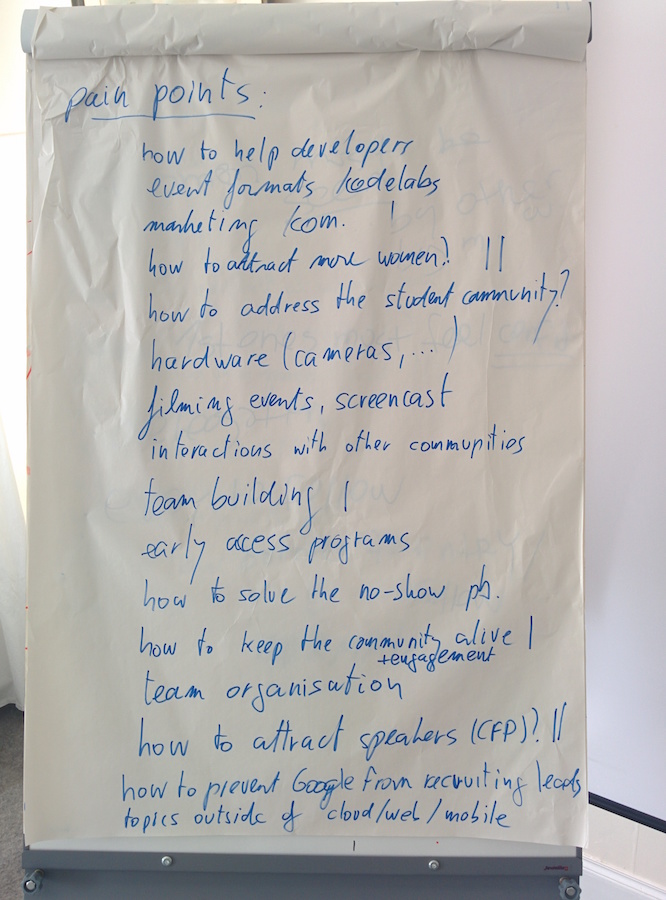 pain points:
how to help developers
event formats /codelabs
marketing /com. |
how to attract more women? ||
how to address the student community?
hardware (cameras, ...)
filming events, screencast
interactions with other communities
team building |
early access programs
how to solve the no-show pb.
how to keep the community alive |
+engagement
team organisation
how to attract speakers (CFP)? ||
how to prevent Google from recruiting leads
topics outside of cloud/web/mobile